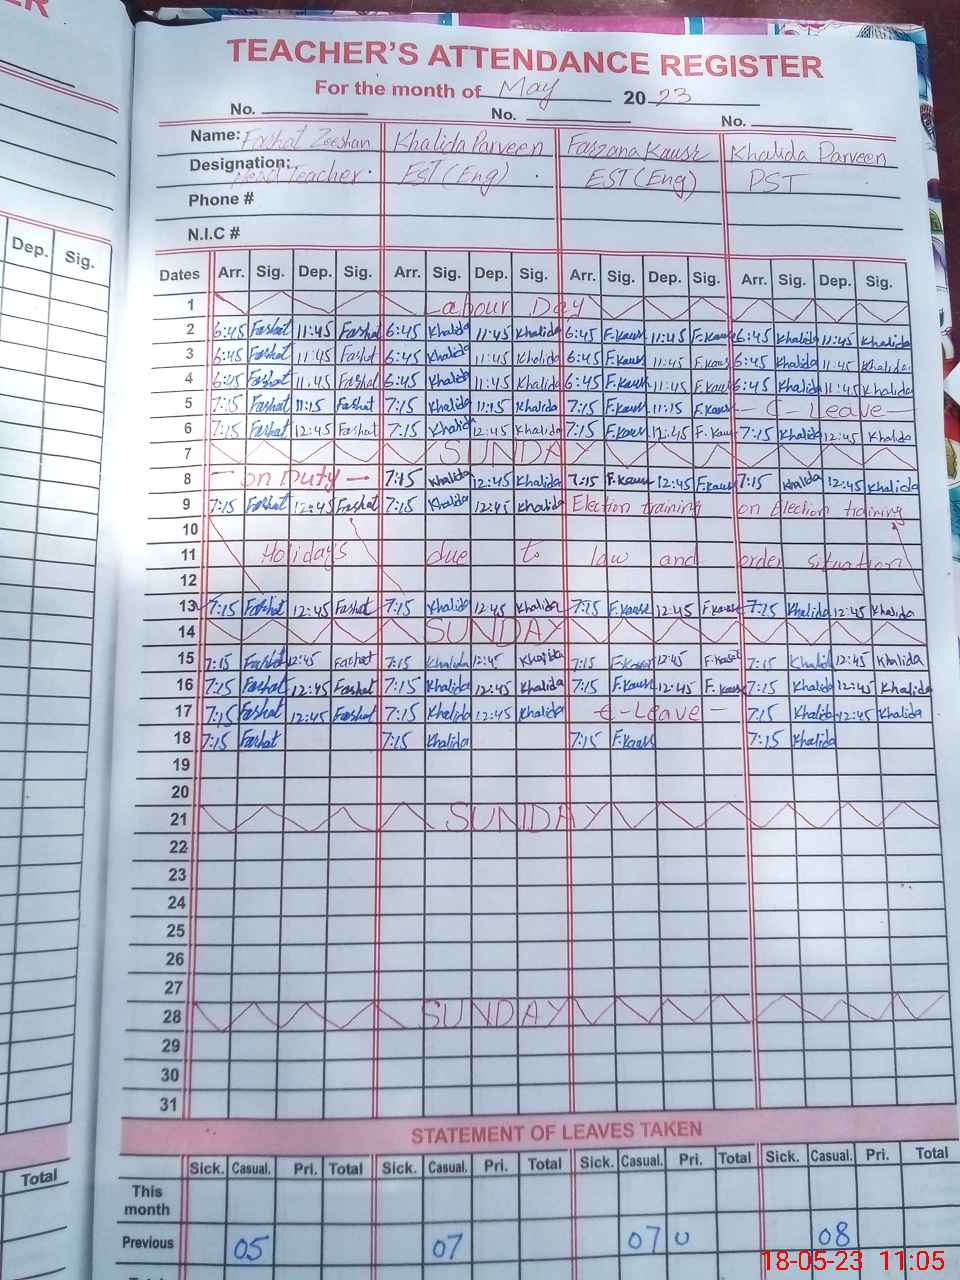 ER
TEACHER'S ATTENDANCE REGISTER
For the month of May 2023
No. No. No.
Name: Farhat Zeeshan Khalida Parveen Farzana Kausr Khalida Parveen
Designation: Head Teacher. EST (Eng) . EST (Eng) PST
Phone #
N.I.C #
Dep. Sig.
Dates Arr. Sig. Dep. Sig. Arr. Sig. Dep. Sig. Arr. Sig. Dep. Sig. Arr. Sig. Dep. Sig.
1 Labour Day
2 6:45 Farhat 11:45 Farhat 6:45 Khalida 11:45 Khalida 6:45 F.Kausr 11:45 F.Kausr 6:45 Khalida 11:45 Khalida
3 6:45 Farhat 11:45 Farhat 6:45 Khalida 11:45 Khalida 6:45 F.Kausr 11:45 F.Kausr 6:45 Khalida 11:45 Khalida
4 6:45 Farhat 11:45 Farhat 6:45 Khalida 11:45 Khalida 6:45 F.Kausr 11:45 F.Kausr 6:45 Khalida 11:45 Khalida
5 7:15 Farhat 11:15 Farhat 7:15 Khalida 11:15 Khalida 7:15 F.Kausr 11:15 F.Kausr - C - Leave -
6 7:15 Farhat 12:45 Farhat 7:15 Khalida 12:45 Khalida 7:15 F.Kausr 12:45 F.Kausr 7:15 Khalida 12:45 Khalida
7 SUNDAY
8 - on Duty - 7:15 Khalida 12:45 Khalida 7:15 F.Kausr 12:45 F.Kausr 7:15 Khalida 12:45 Khalida
9 7:15 Farhat 12:45 Farhat 7:15 Khalida 12:45 Khalida Election training on Election training
10
11 Holidays due to law and order situation
12
13 7:15 Farhat 12:45 Farhat 7:15 Khalida 12:45 Khalida 7:15 F.Kausr 12:45 F.Kausr 7:15 Khalida 12:45 Khalida
14 SUNDAY
15 7:15 Farhat 12:45 Farhat 7:15 Khalida 12:45 Khalida 7:15 F.Kausr 12:45 F.Kausr 7:15 Khalida 12:45 Khalida
16 7:15 Farhat 12:45 Farhat 7:15 Khalida 12:45 Khalida 7:15 F.Kausr 12:45 F.Kausr 7:15 Khalida 12:45 Khalida
17 7:15 Farhat 12:45 Farhat 7:15 Khalida 12:45 Khalida - C - Leave - 7:15 Khalida 12:45 Khalida
18 7:15 Farhat 7:15 Khalida 7:15 F.Kausr 7:15 Khalida
19
20
21 SUNDAY
22
23
24
25
26
27
28 SUNDAY
29
30
31
STATEMENT OF LEAVES TAKEN
Total
Sick. Casual. Pri. Total Sick. Casual. Pri. Total Sick. Casual. Pri. Total Sick. Casual. Pri. Total
This
month
Previous 05 07 07 08
18-05-23 11:05